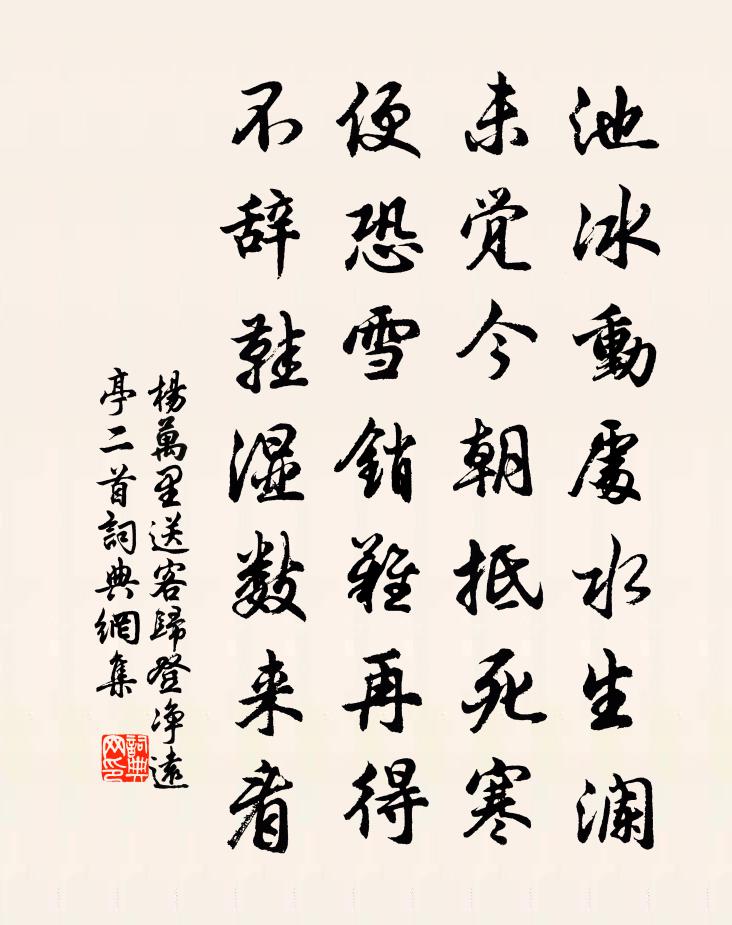 池冰動處水生澜
未覚今朝抵死寒
便恐雪銷難再得
不辞鞋湿數来看
楊萬里送客歸登净遠
亭二首詞典網集
詞典
网印